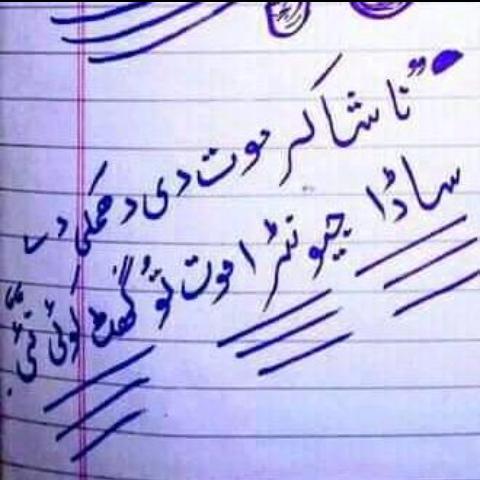 "نا شاکر موت دی دھمکی دے
ساڈا جیونڑا موت تو گھٹ کوئی نئی"